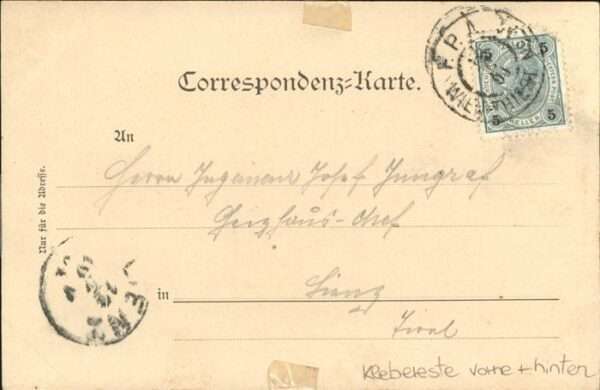 F.P.A.
WIEN
5 5
HELLER
5 5
Correspondenz-Karte.
An
Herrn Ingenieur Josef Jungraf
Heizhaus-Chef
in Lienz
Tirol
Nur für die Adresse.
LIENZ
Klebereste vorne + hinten